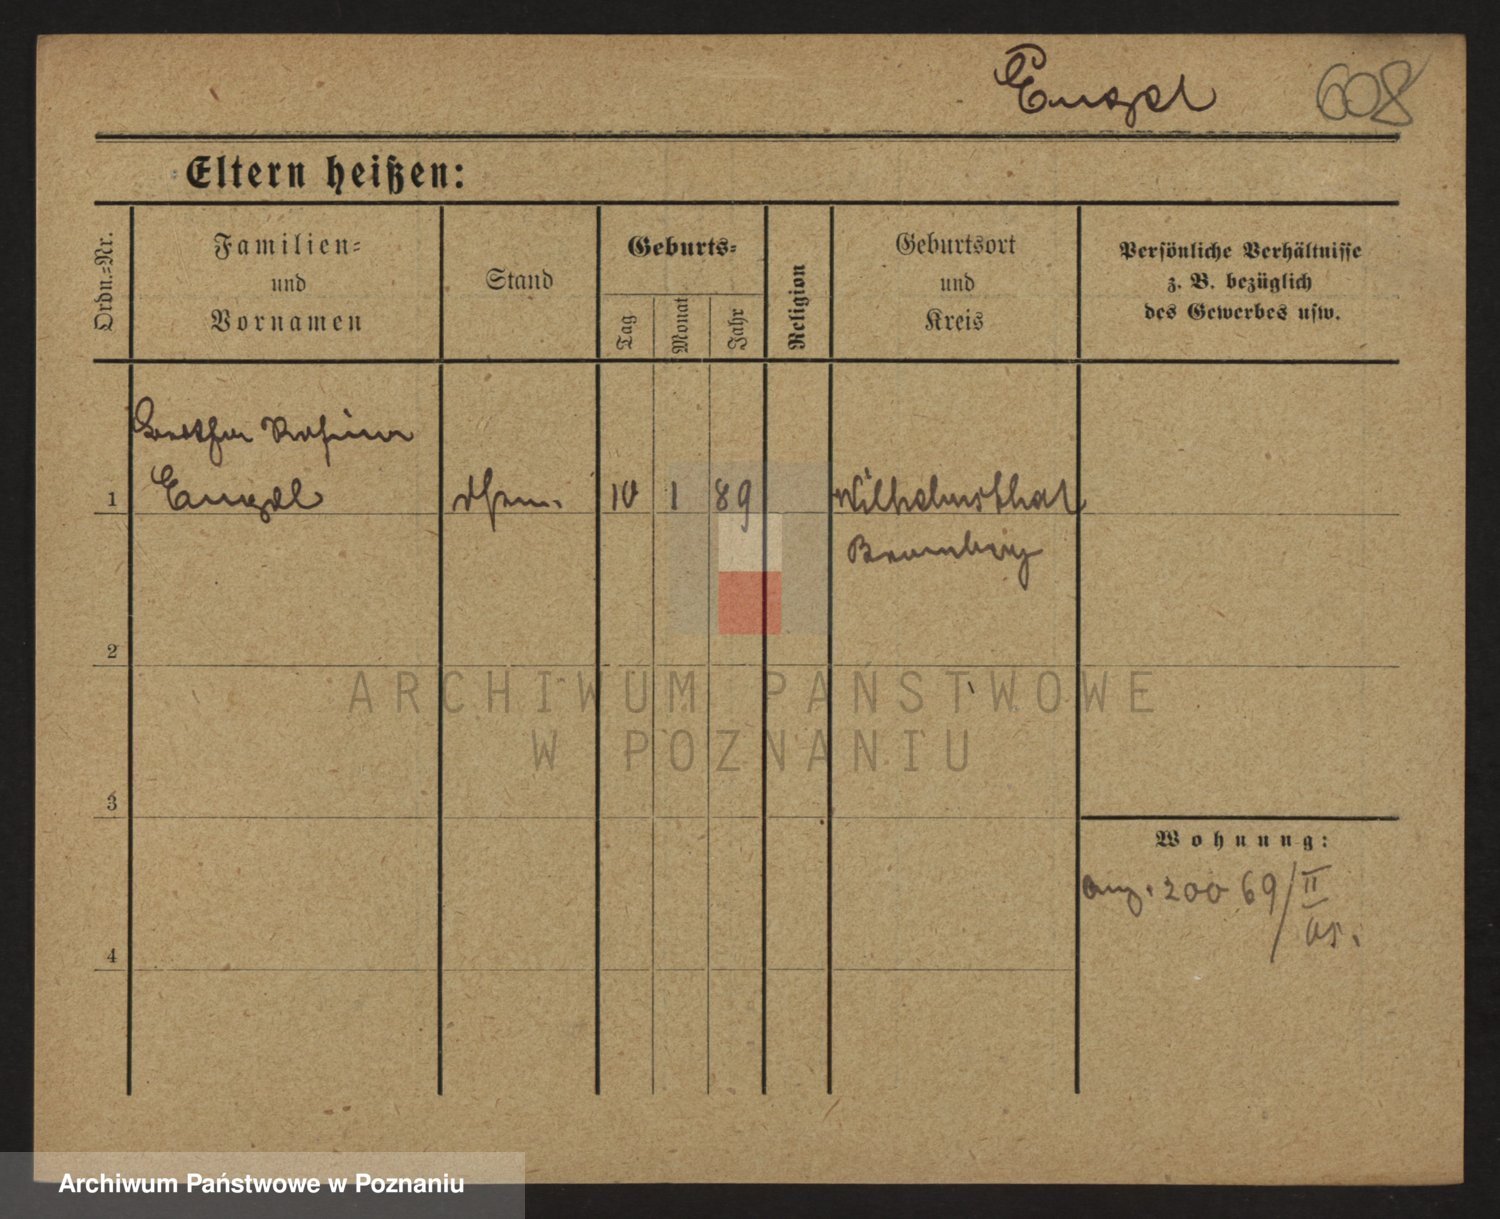 Engel 608
Eltern heißen:
Ordn.=Nr.
Familien=
und
Vornamen
Stand
Geburts=
Tag
Monat
Jahr
Religion
Geburtsort
und
Kreis
Persönliche Verhältnisse
z. B. bezüglich
des Gewerbes usw.
1 Engel 10 1 89 Wilhelmsthal
Bromberg
2
3
4
Wohnung:
200 69/II
05.
ARCHIWUM PAŃSTWOWE
W POZNANIU
Archiwum Państwowe w Poznaniu